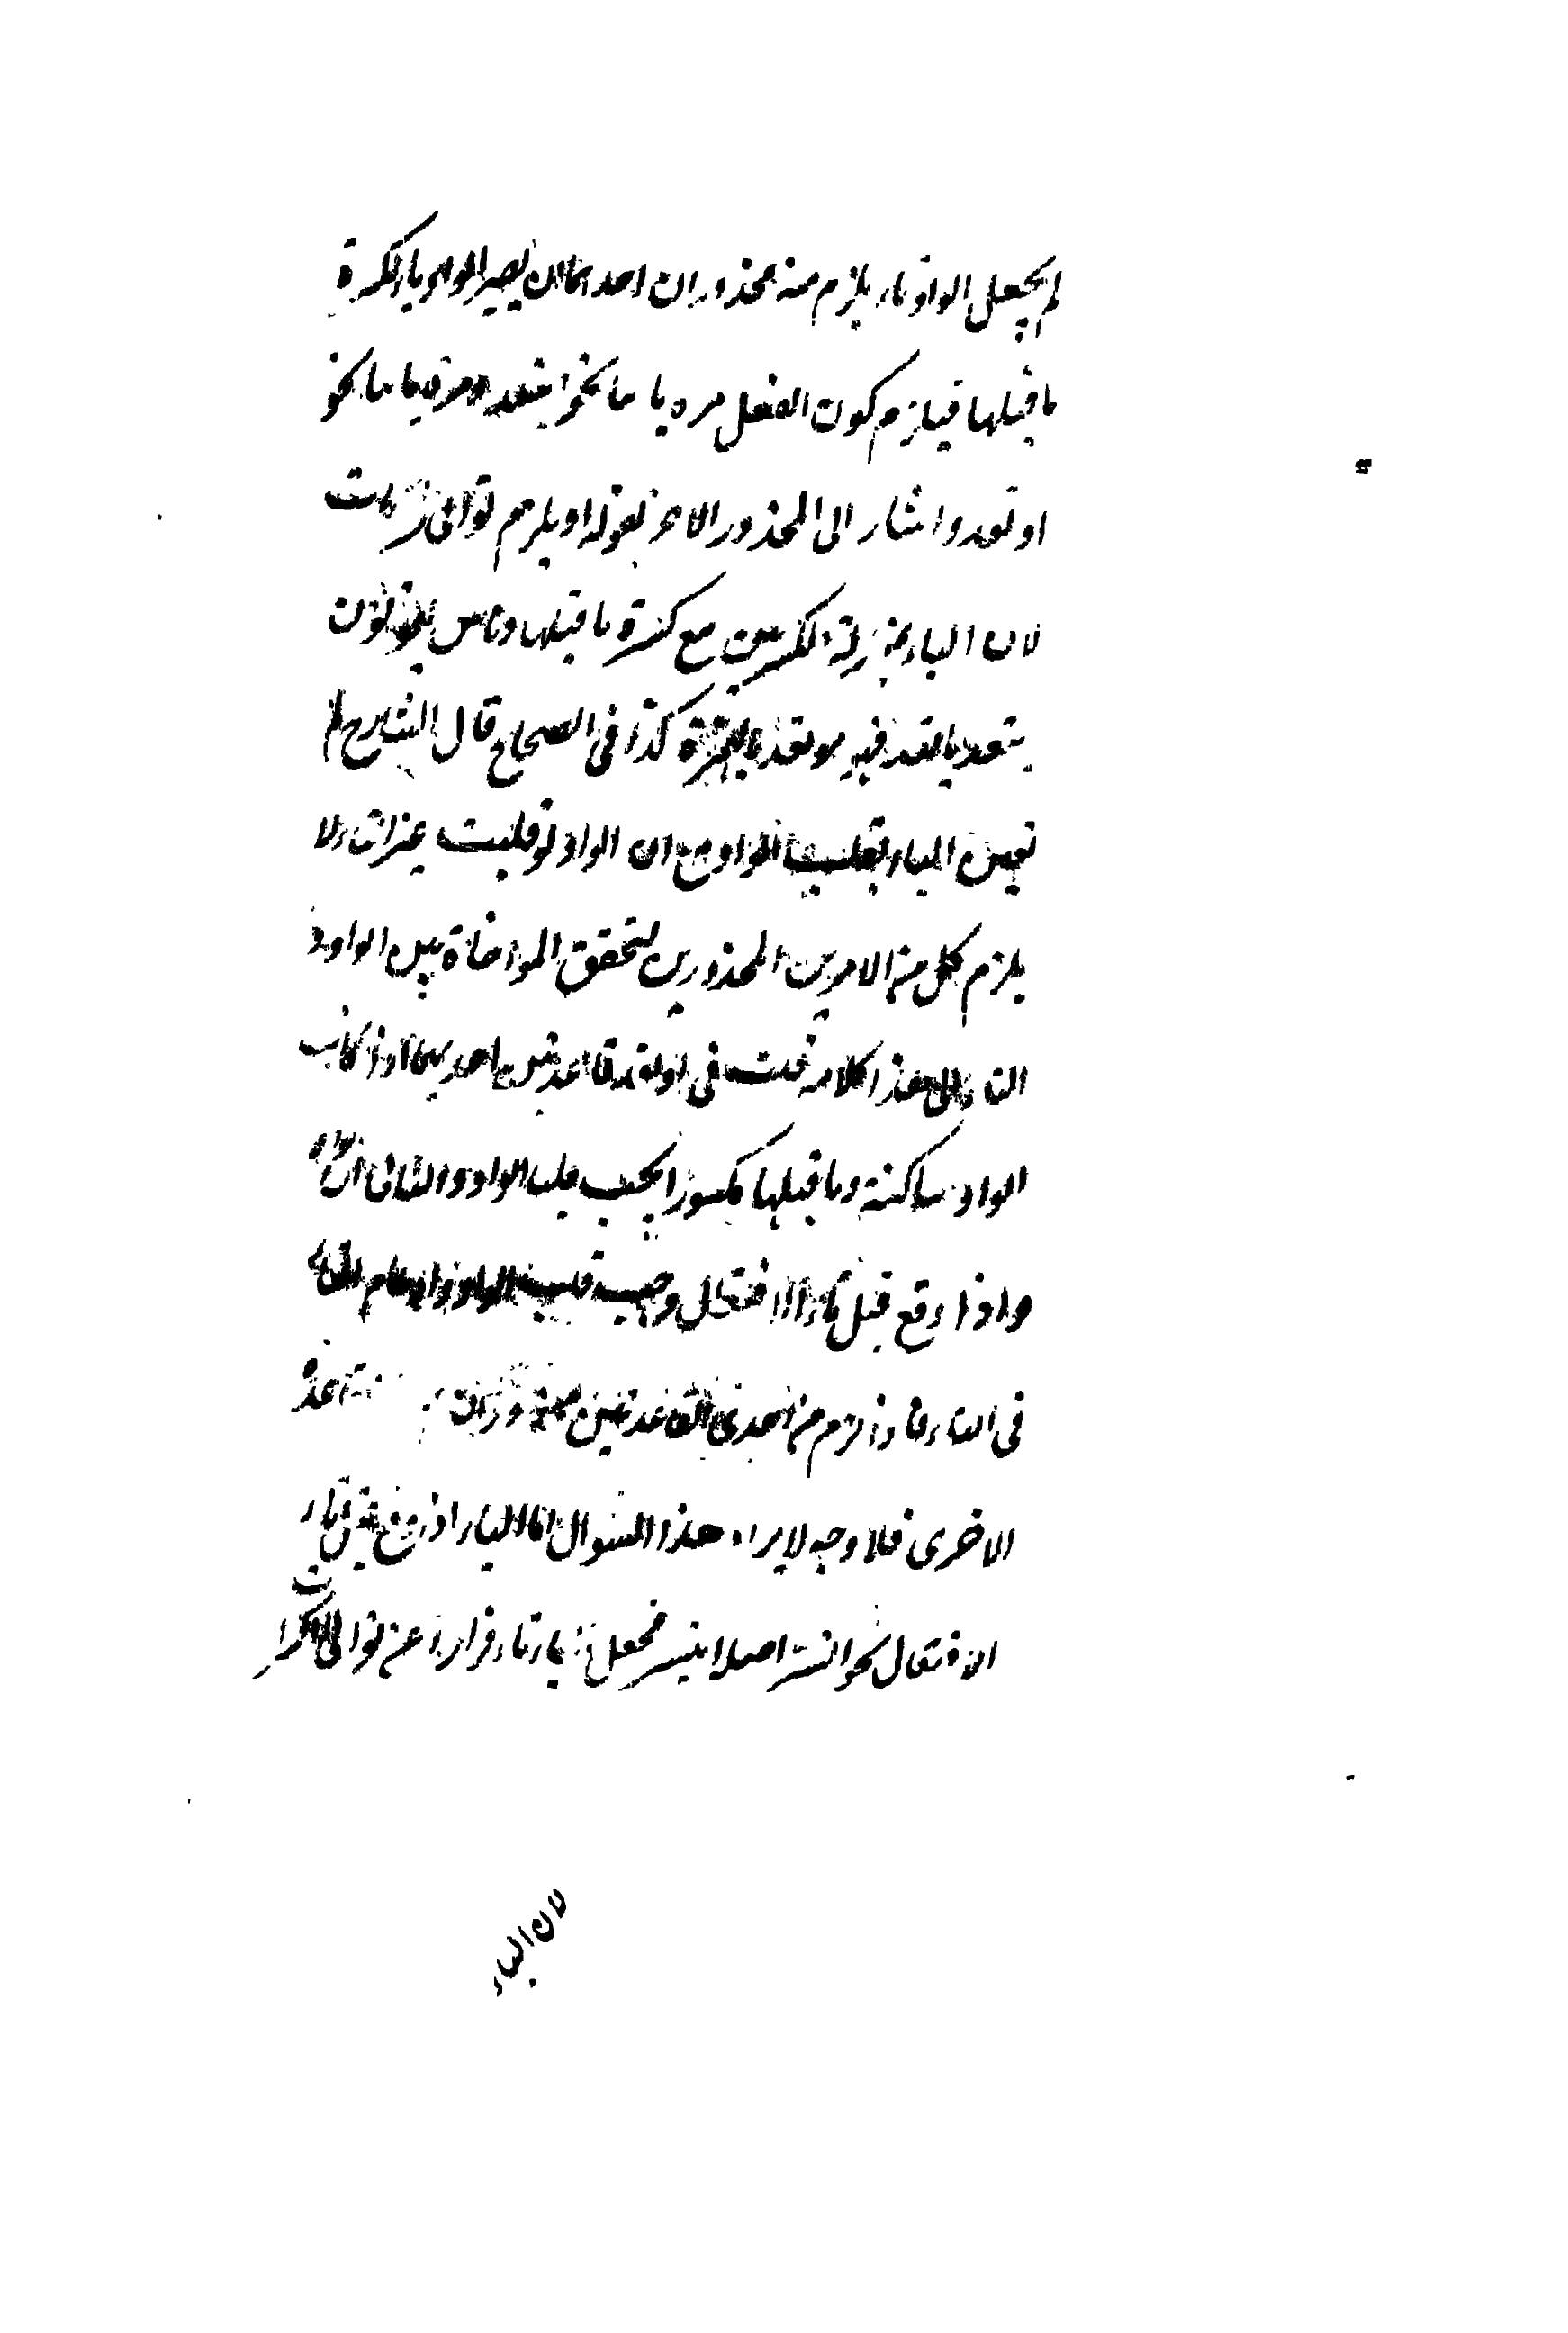 لم يجعل الواو تاء يلزم منه محذوران احدهما ان يصير الواو ياء لكسرة
ما قبلها فيلزم كون الفعل مرة يا نحو ايتعد ومرة نحو
او تعد واشار الى المحذور الآخر بقوله او يلزم توالى
لان الياء بمنزلة الكسرتين مع كسرة ما قبلها وناس يقولون
كذا فى الصحاح قال الشارح لم
الياء بقلب الواو مع ان الواو لو قلبت غير التاء لا
يلزم كل من الامرين المحذورين لتحقق المواخاة بين الواو و
التاء الى هذا كلامه قلت فى قاعدتين احديهما اذا كانت
الواو ساكنة وما قبلها مكسورا يجب قلب الواو والثانى
واذا وقع قبل تاء الافتعال وجب قلب الواو وادغام
فى التاء فاذا لزم من احدى القاعدتين محذوران
الاخرى فلا وجه لايراد هذا السؤال اما الياء اذا وقع قبل تاء
الافتعال نحو اتسر اصله ايتسر فجعل الياء تاء فرارا عن توالى الكسرات
لان الياء